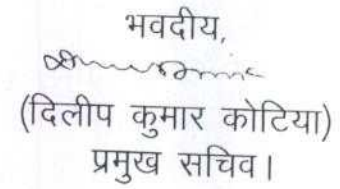 भवदीय,
(दिलीप कुमार कोटिया)
प्रमुख सचिव।